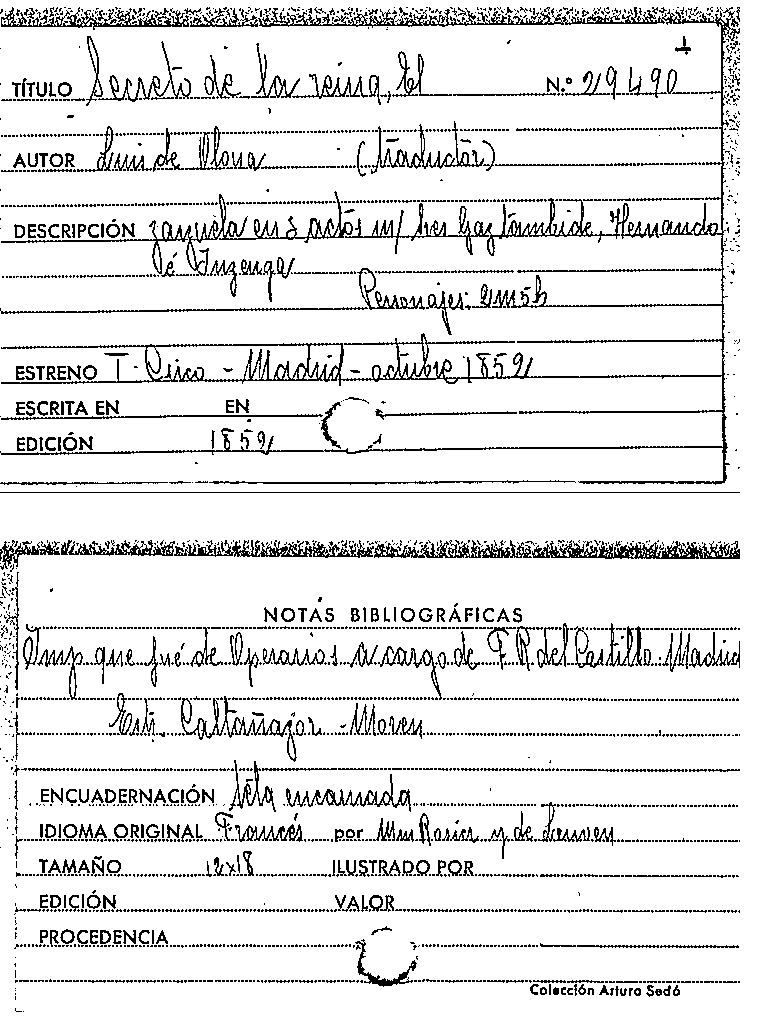 TÍTULO Secreto de la reina, El N.º 29490
AUTOR Luis de Olona (traductor)
DESCRIPCIÓN zarzuela en 3 actos m/ Gaztambide, Hernando
é Inzenga
Personajes: 2m5h
ESTRENO T. Circo - Madrid - octubre 1852
ESCRITA EN EN
EDICIÓN 1852
NOTAS BIBLIOGRÁFICAS
Imp que fué de Operarios a cargo de F. R. del Castillo. Madrid
Caltañazor - Moren
ENCUADERNACIÓN tela encarnada
IDIOMA ORIGINAL Francés por Mm Rosier y de Leuven
TAMAÑO 12x18 ILUSTRADO POR
EDICIÓN VALOR
PROCEDENCIA
Colección Arturo Sedó